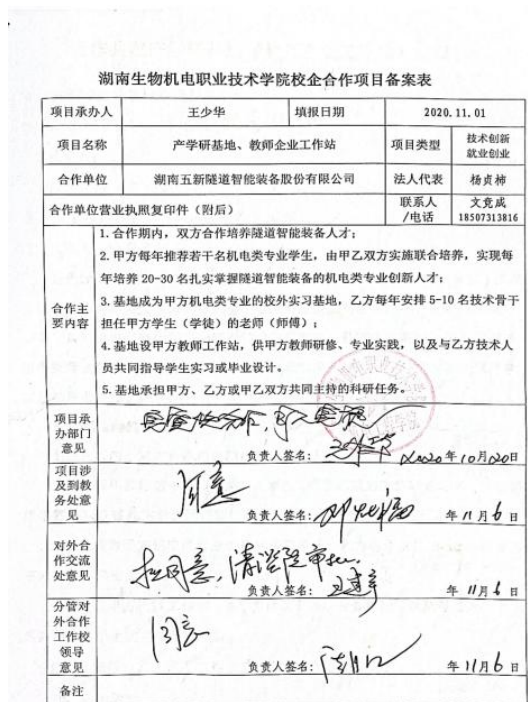 湖南生物机电职业技术学院校企合作项目备案表
项目承办人 王少华 填报日期 2020.11.01
项目名称 产学研基地、教师企业工作站 项目类型 技术创新 就业创业
合作单位 湖南五新隧道智能装备股份有限公司 法人代表 杨贞柿
合作单位营业执照复印件（附后） 联系人/电话 文竞成 18507313816
合作主要内容
1.合作期内，双方合作培养隧道智能装备人才；
2.甲方每年推荐若干名机电类专业学生，由甲乙双方实施联合培养，实现每
年培养20-30名扎实掌握隧道智能装备的机电类专业创新人才；
3.基地成为甲方机电类专业的校外实习基地，乙方每年安排5-10名技术骨干
担任甲方学生（学徒）的老师（师傅）；
4.基地设甲方教师工作站，供甲方教师研修、专业实践，以及与乙方技术人
员共同指导学生实习或毕业设计。
5.基地承担甲方、乙方或甲乙双方共同主持的科研任务。
项目承办部门意见
负责人签名： 2020年10月20日
项目涉及到教务处意见
同意
负责人签名： 年11月6日
对外合作交流处意见
拟同意，请学院审批。
负责人签名： 年11月6日
分管对外合作工作校领导意见
同意
负责人签名： 年11月6日
备注